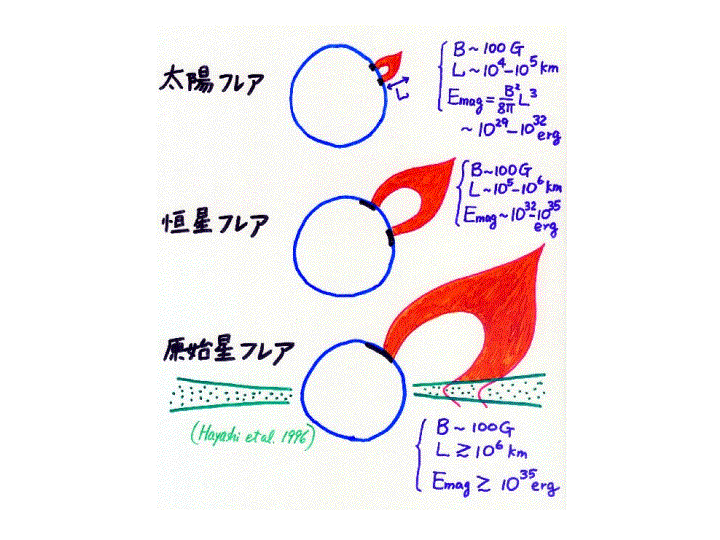 太陽フレア
B ~ 100 G
L ~ 10⁴–10⁵ km
Emag = B²/8π L³
~ 10²⁹–10³² erg
L
恒星フレア
B ~ 100 G
L ~ 10⁵–10⁶ km
Emag ~ 10³²–10³⁵ erg
原始星フレア
(Hayashi et al. 1996)
B ~ 100 G
L ≳ 10⁶ km
Emag ≳ 10³⁵ erg